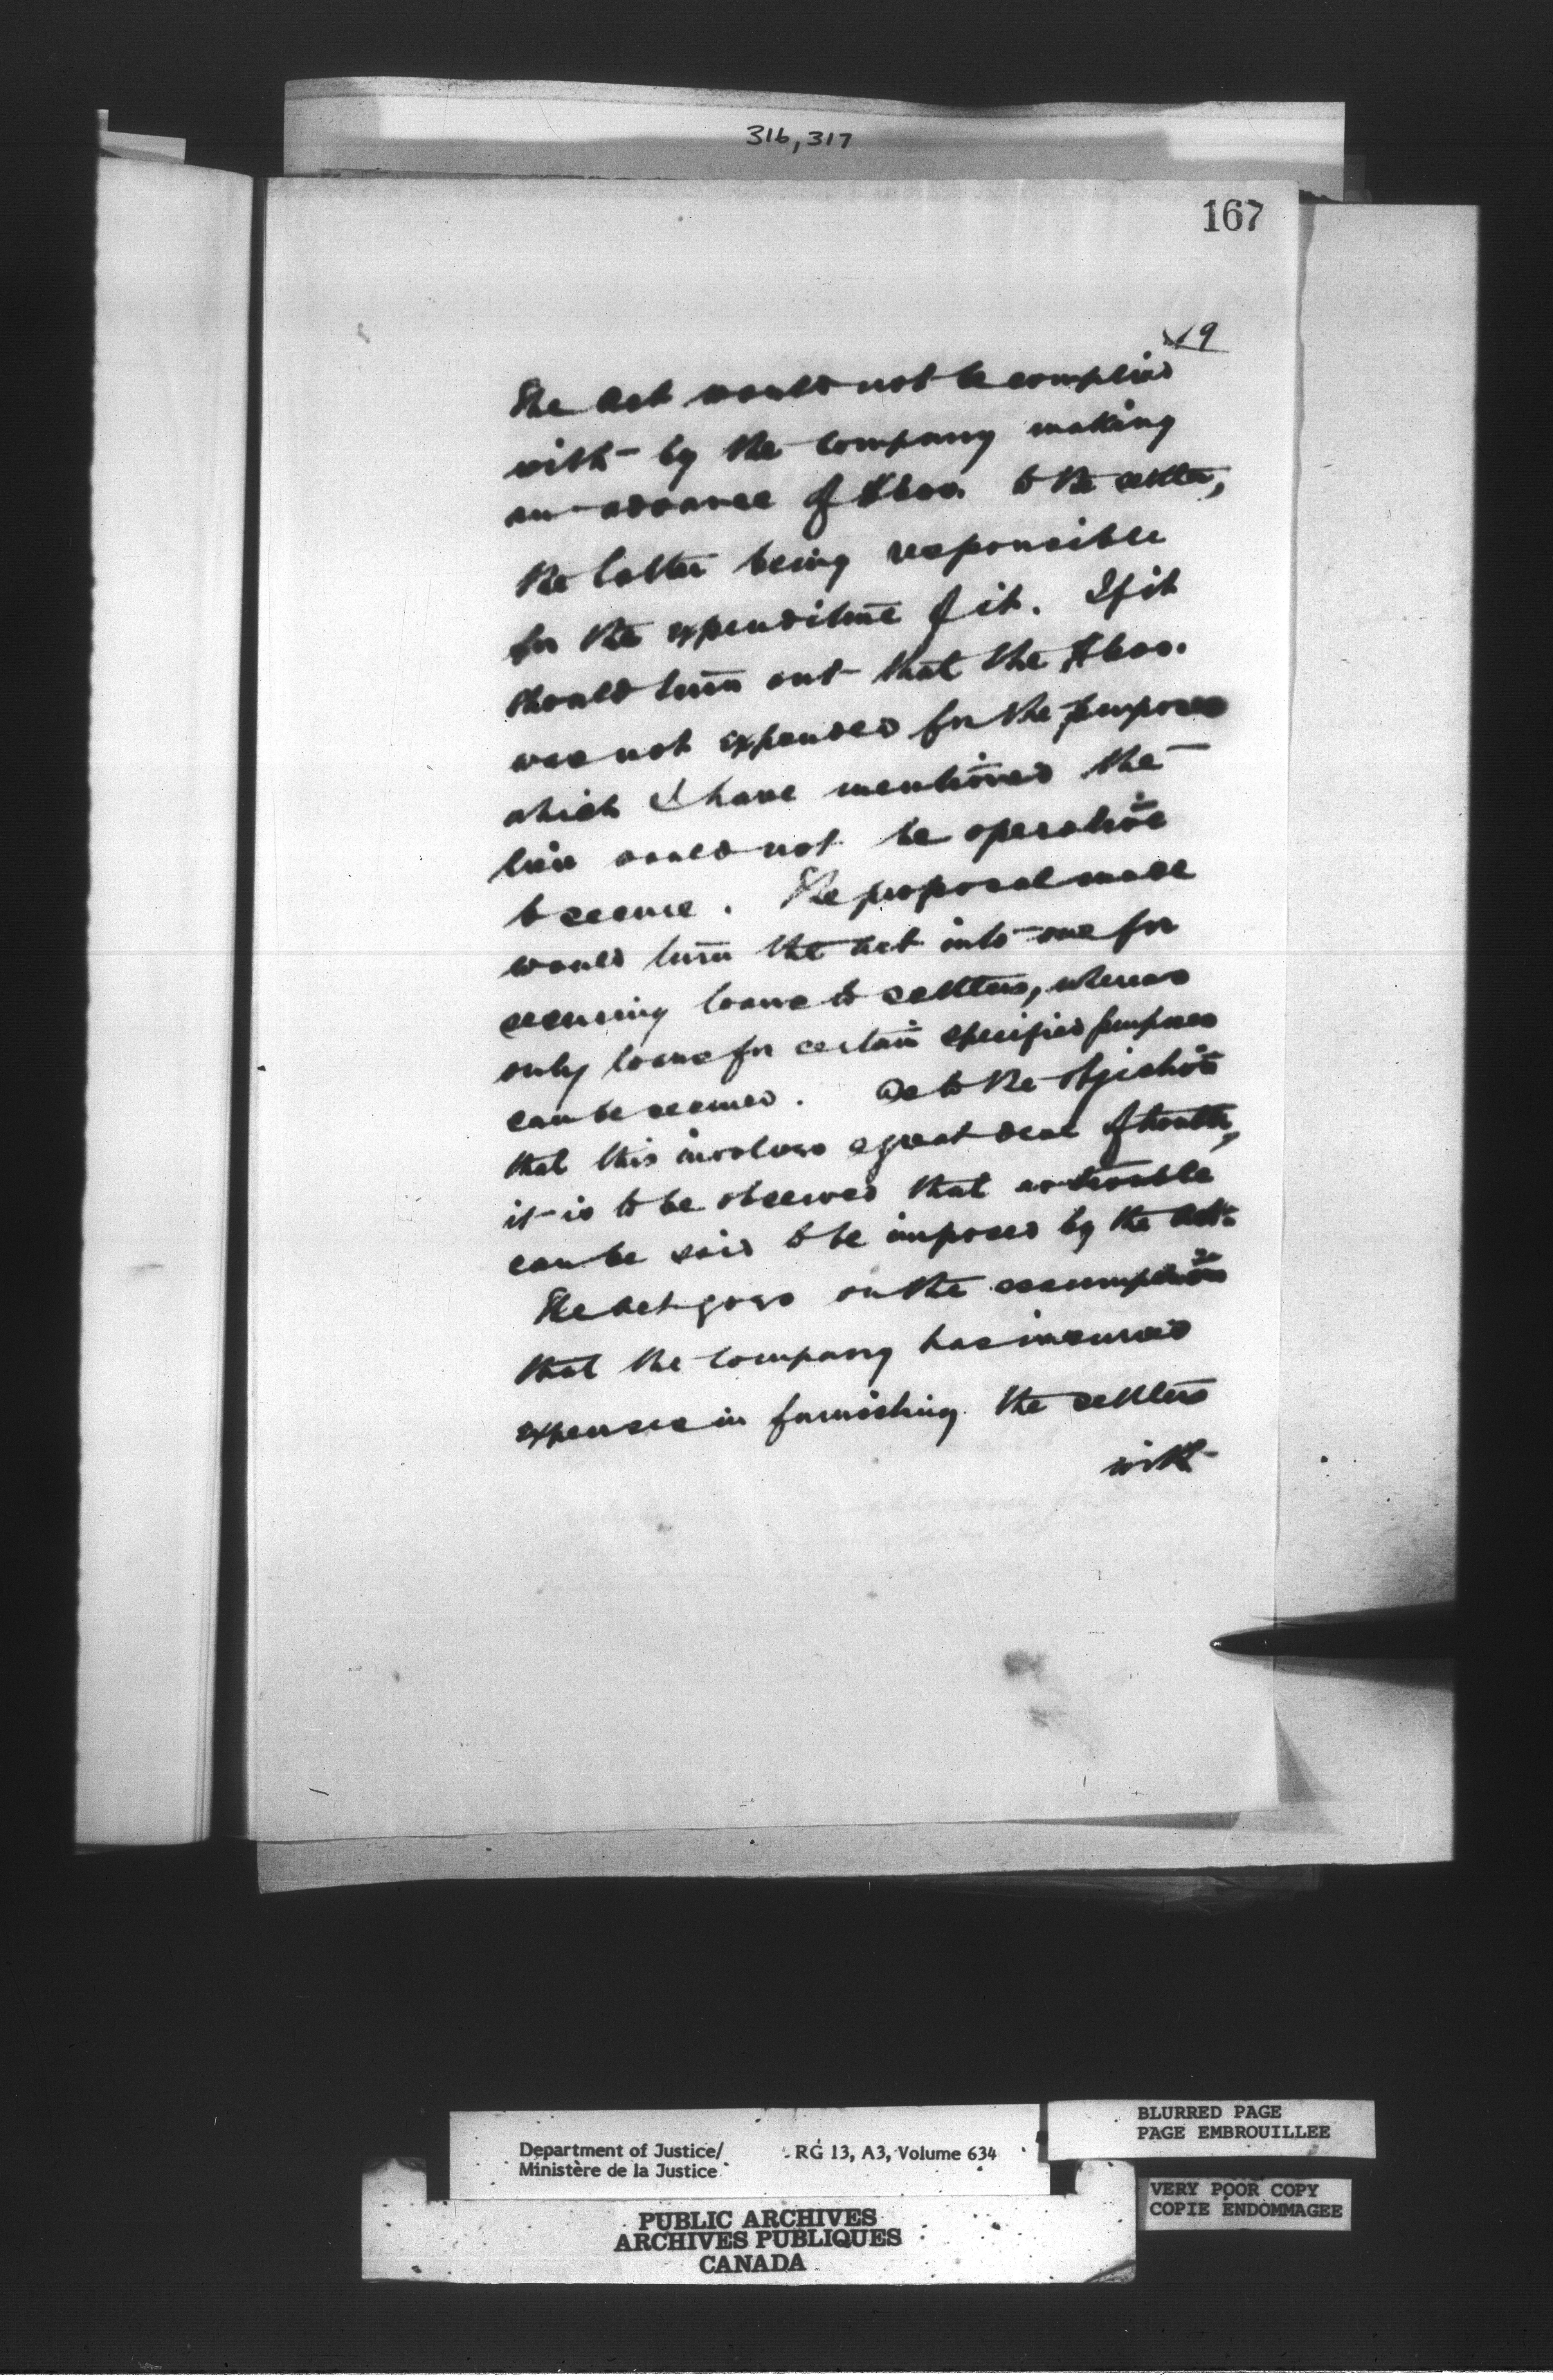 316, 317
167
9
The Act would not be complied
with by the Company making
an advance of $600. to the settler,
the latter being responsible
for the expenditure of it. If it
should turn out that the $600.
was not expended for the purposes
which I have mentioned the
lien would not be operative
to secure. The proposal made
would turn the Act into one for
securing loans to settlers, whereas
only loans for certain specified purposes
can be secured. As to the objection
that this involves a great deal of trouble,
it is to be observed that no trouble
can be said to be imposed by the Act.
The Act goes on the assumption
that the Company has incurred
expenses in furnishing the settlers
with
Department of Justice/ RG 13, A3, Volume 634
Ministère de la Justice
BLURRED PAGE
PAGE EMBROUILLEE
VERY POOR COPY
COPIE ENDOMMAGEE
PUBLIC ARCHIVES
ARCHIVES PUBLIQUES
CANADA